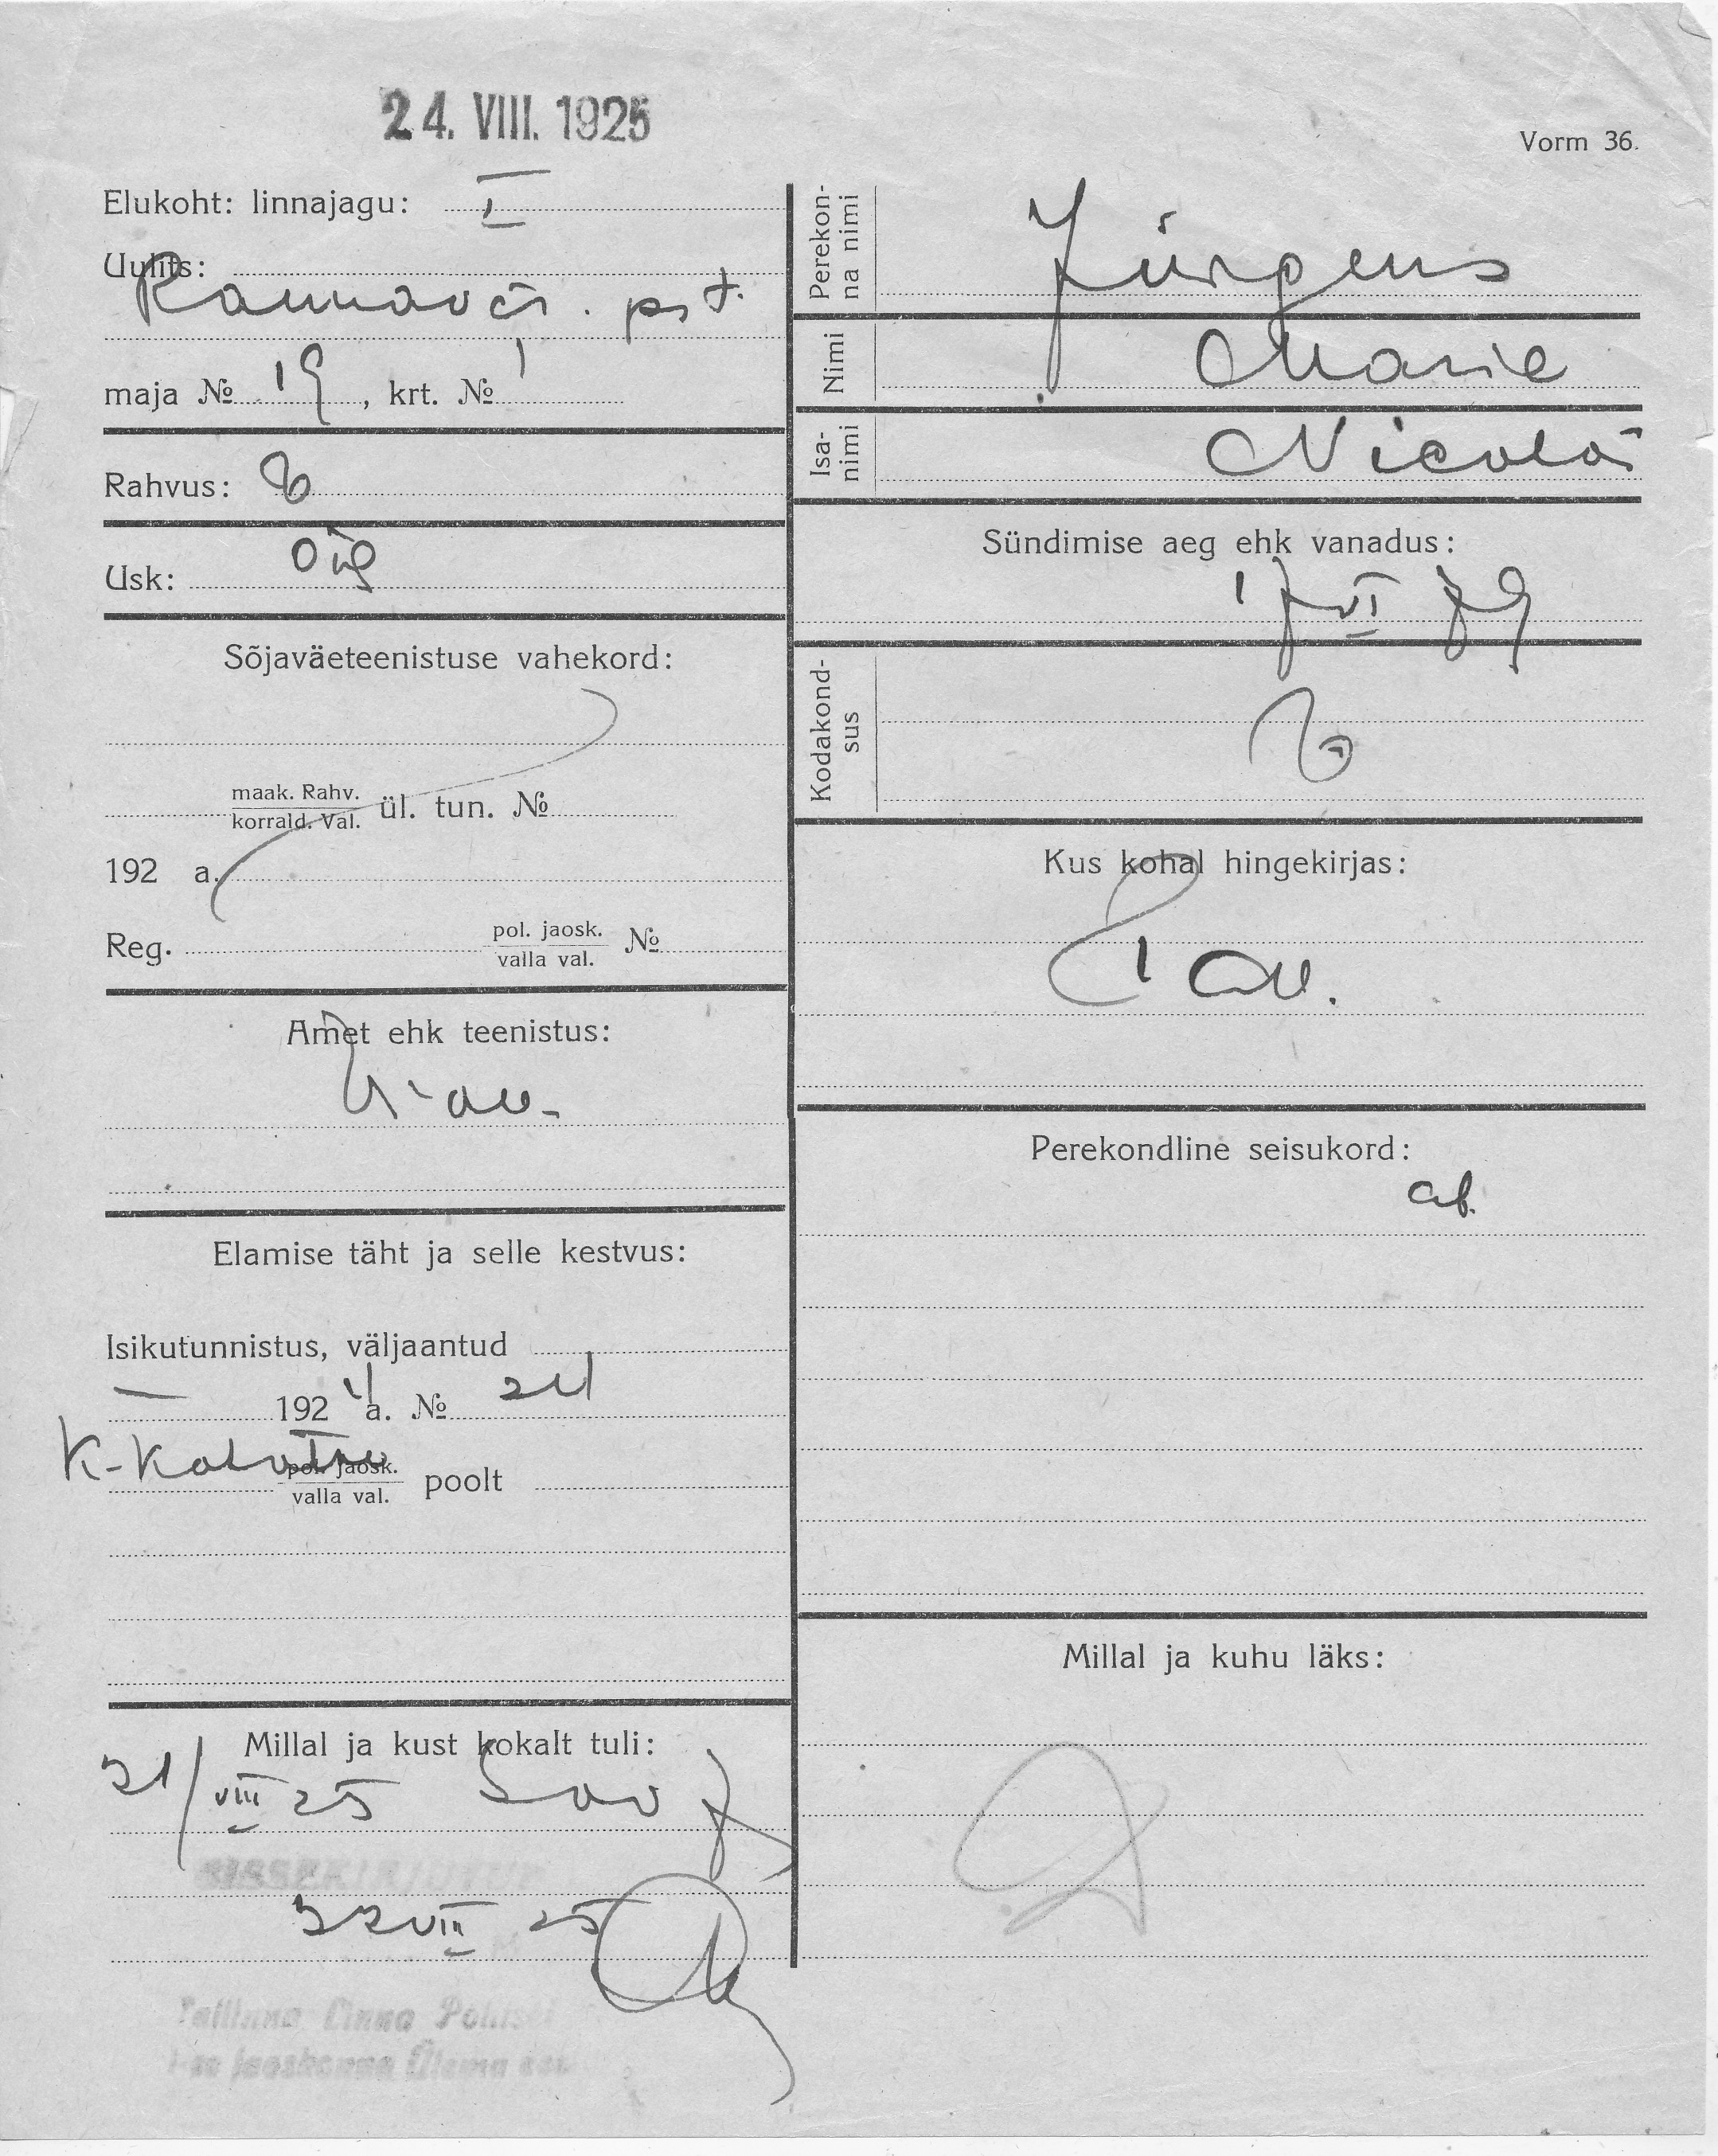 24. VIII. 1925
Vorm 36.
Elukoht: linnajagu: I
Uulits:
Rannavär. pst.
maja № 19, krt. № 1
Rahvus: e
Usk: õig
Sõjaväeteenistuse vahekord:
maak. Rahv.
korrald. Val. ül. tun. №
192 a.
Reg. pol. jaosk. №
valla val.
Amet ehk teenistus:
Elamise täht ja selle kestvus:
Isikutunnistus, väljaantud
— 1924 a. № 241
pol. jaosk.
valla val. poolt
Millal ja kust kokalt tuli:
21/VIII 25
SISSEKIRJUTUD
22 VIII 25
Tallinna Linna Politsei
I-se jaoskonna Ülema
Perekon-
na nimi
Jürgens
Nimi
Marie
Isa-
nimi
Nicolai
Sündimise aeg ehk vanadus:
17 VI 79
Kodakond-
sus
e
Kus kohal hingekirjas:
Perekondline seisukord:
ab.
Millal ja kuhu läks: